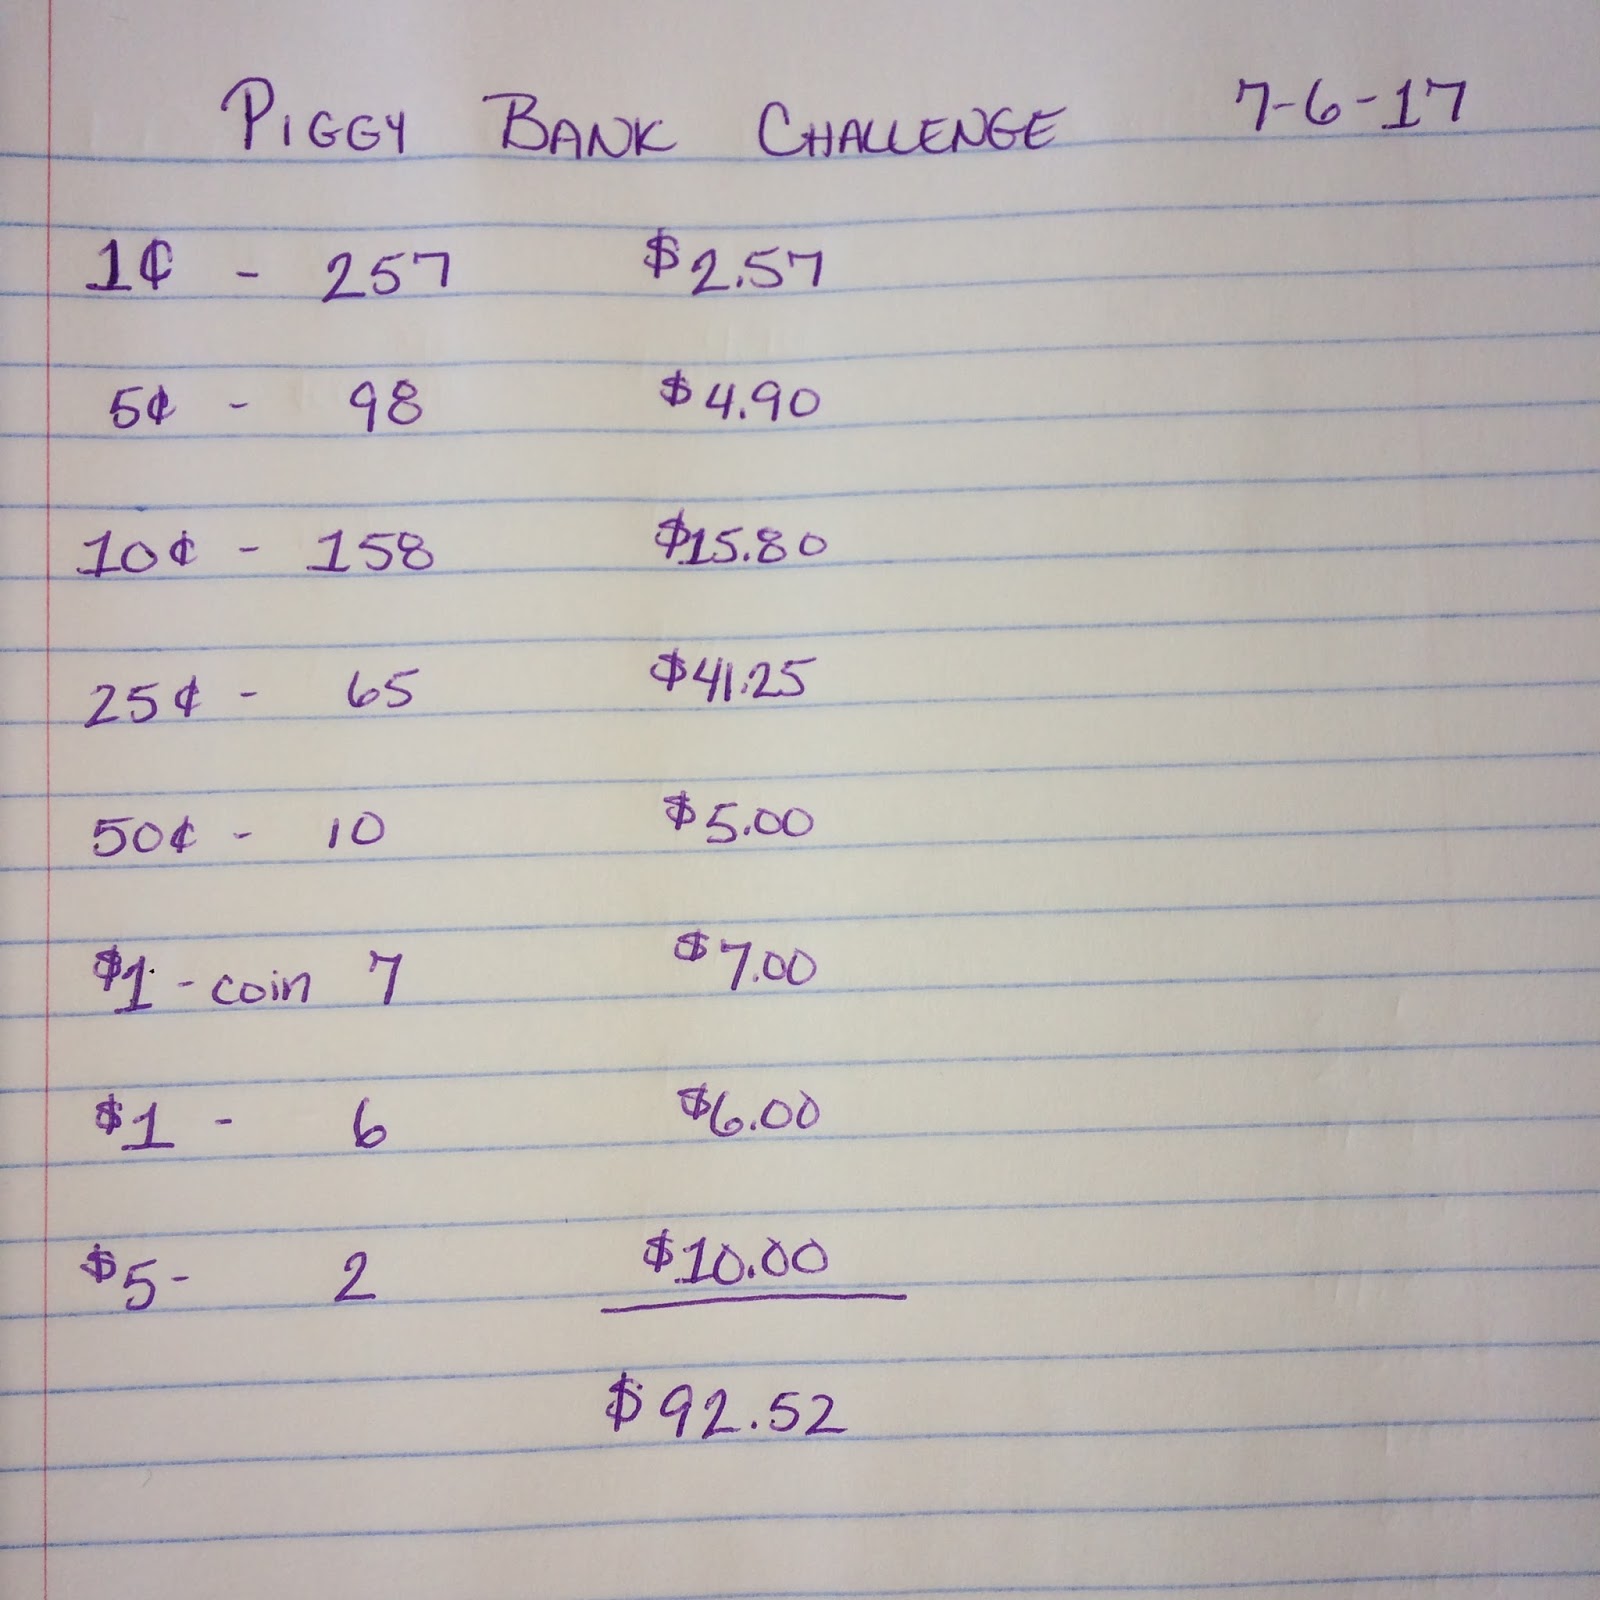 PIGGY BANK CHALLENGE 7-6-17
1¢ - 257 $2.57
5¢ - 98 $4.90
10¢ - 158 $15.80
25¢ - 65 $41.25
50¢ - 10 $5.00
$1 - coin 7 $7.00
$1 - 6 $6.00
$5 - 2 $10.00
$92.52